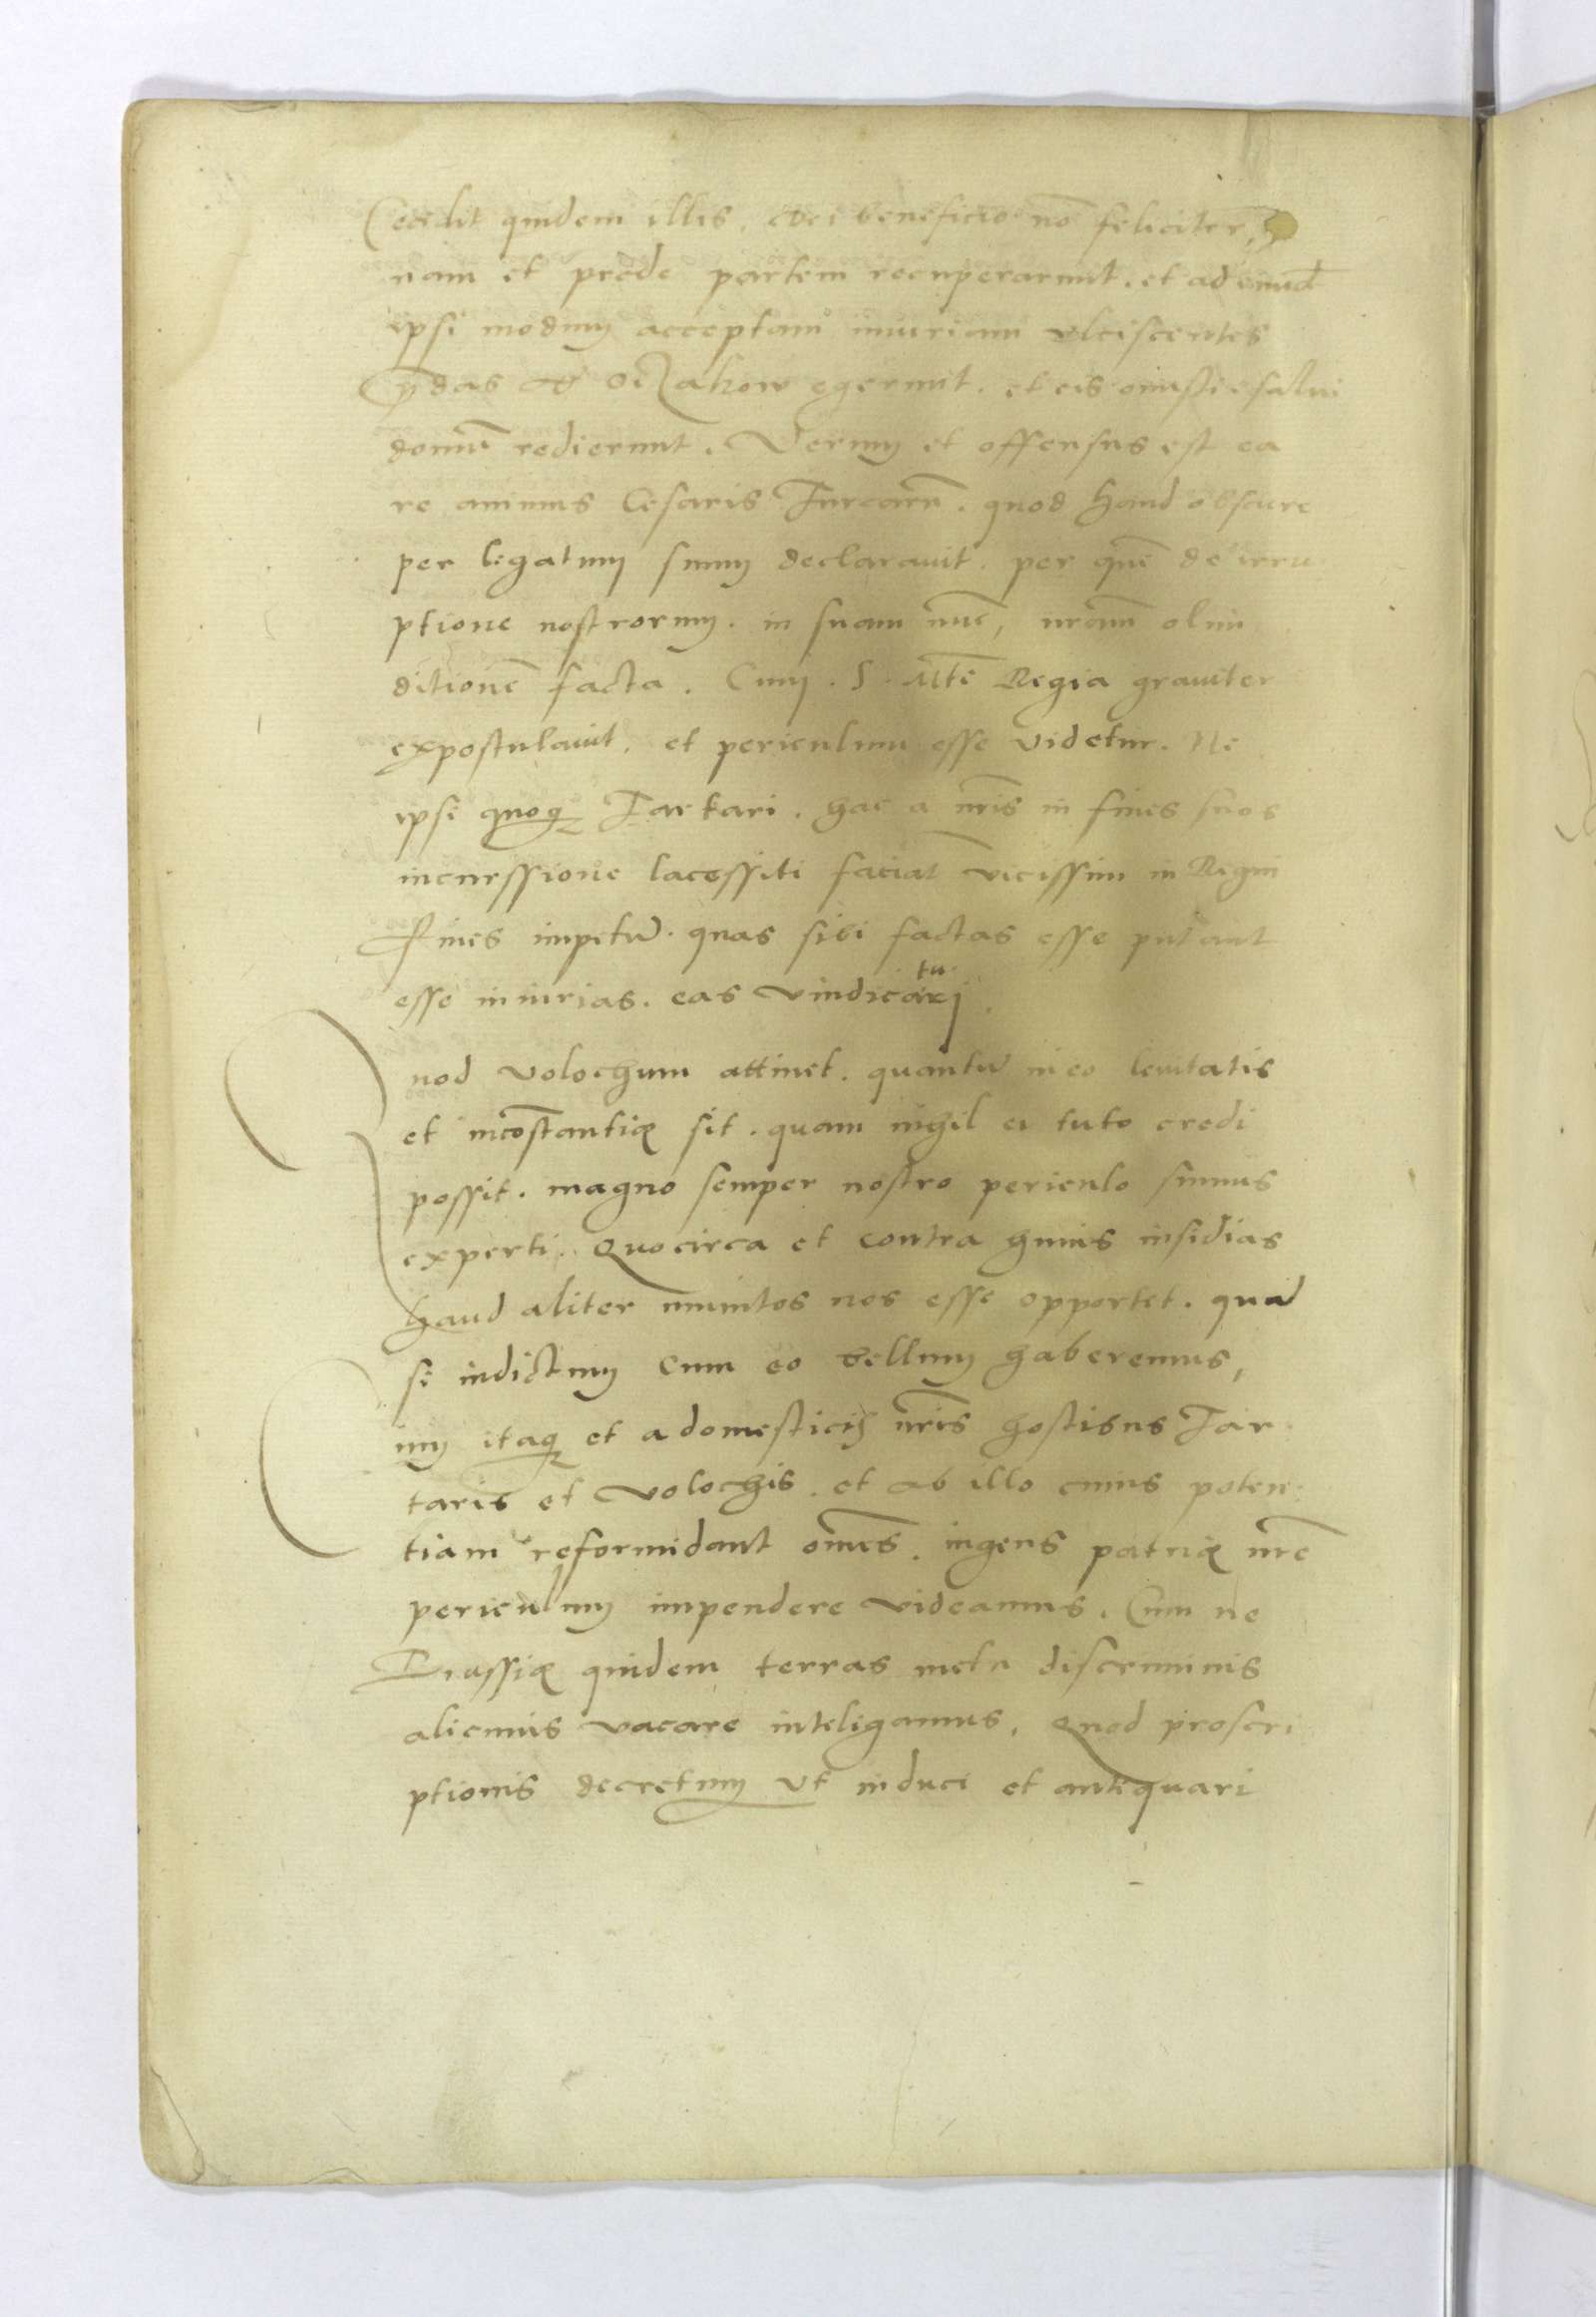 Cecidit quidem illis, dei beneficio nõ feliciter,
nam et prede partem recuperarunt. et ad eund
ipsi modum acceptam iniuriam ulciscentes
p̃das ex Oczakow egerunt. et eis onusti salui
domũ redierunt. Verum et offensus est ea
re animus Cesaris Turcarũ. quod haud obscure
per legatum suum declarauit. per quẽ de irru
ptione nostrorum. in suam nũc, nr̃am olim
ditionẽ facta. Cum. S. Mtẽ Regia grauiter
expostulauit. et periculum esse videtur. Ne
ipsi quoq Tartari. hac a nr̃is in fines suos
incurssione lacessiti faciãt vicissim in Regni
Fines impetũ. quas sibi factas esse putant
esse iniurias. eas vindicaturi
Quod volochum attinet. quantũ in eo leuitatis
et incõstantię sit. quam nihil ei tuto credi
possit. magno semper nostro periculo sumus
experti. Quocirca et contra huius insidias
haud aliter munitos nos esse opportet. quã
si indictum cum eo bellum haberemus,
Cum itaq et a domesticis nr̃is hostibus Tar
taris et volochis. et ab illo cuius poten
tiam reformidant om̃es. ingens patrię nr̃e
periculum impendere videamus. Cum ne
Prussię quidem terras metu discriminis
alicuius vacare inteligamus. Quod proscri
ptionis decretum ut induci et antiquari